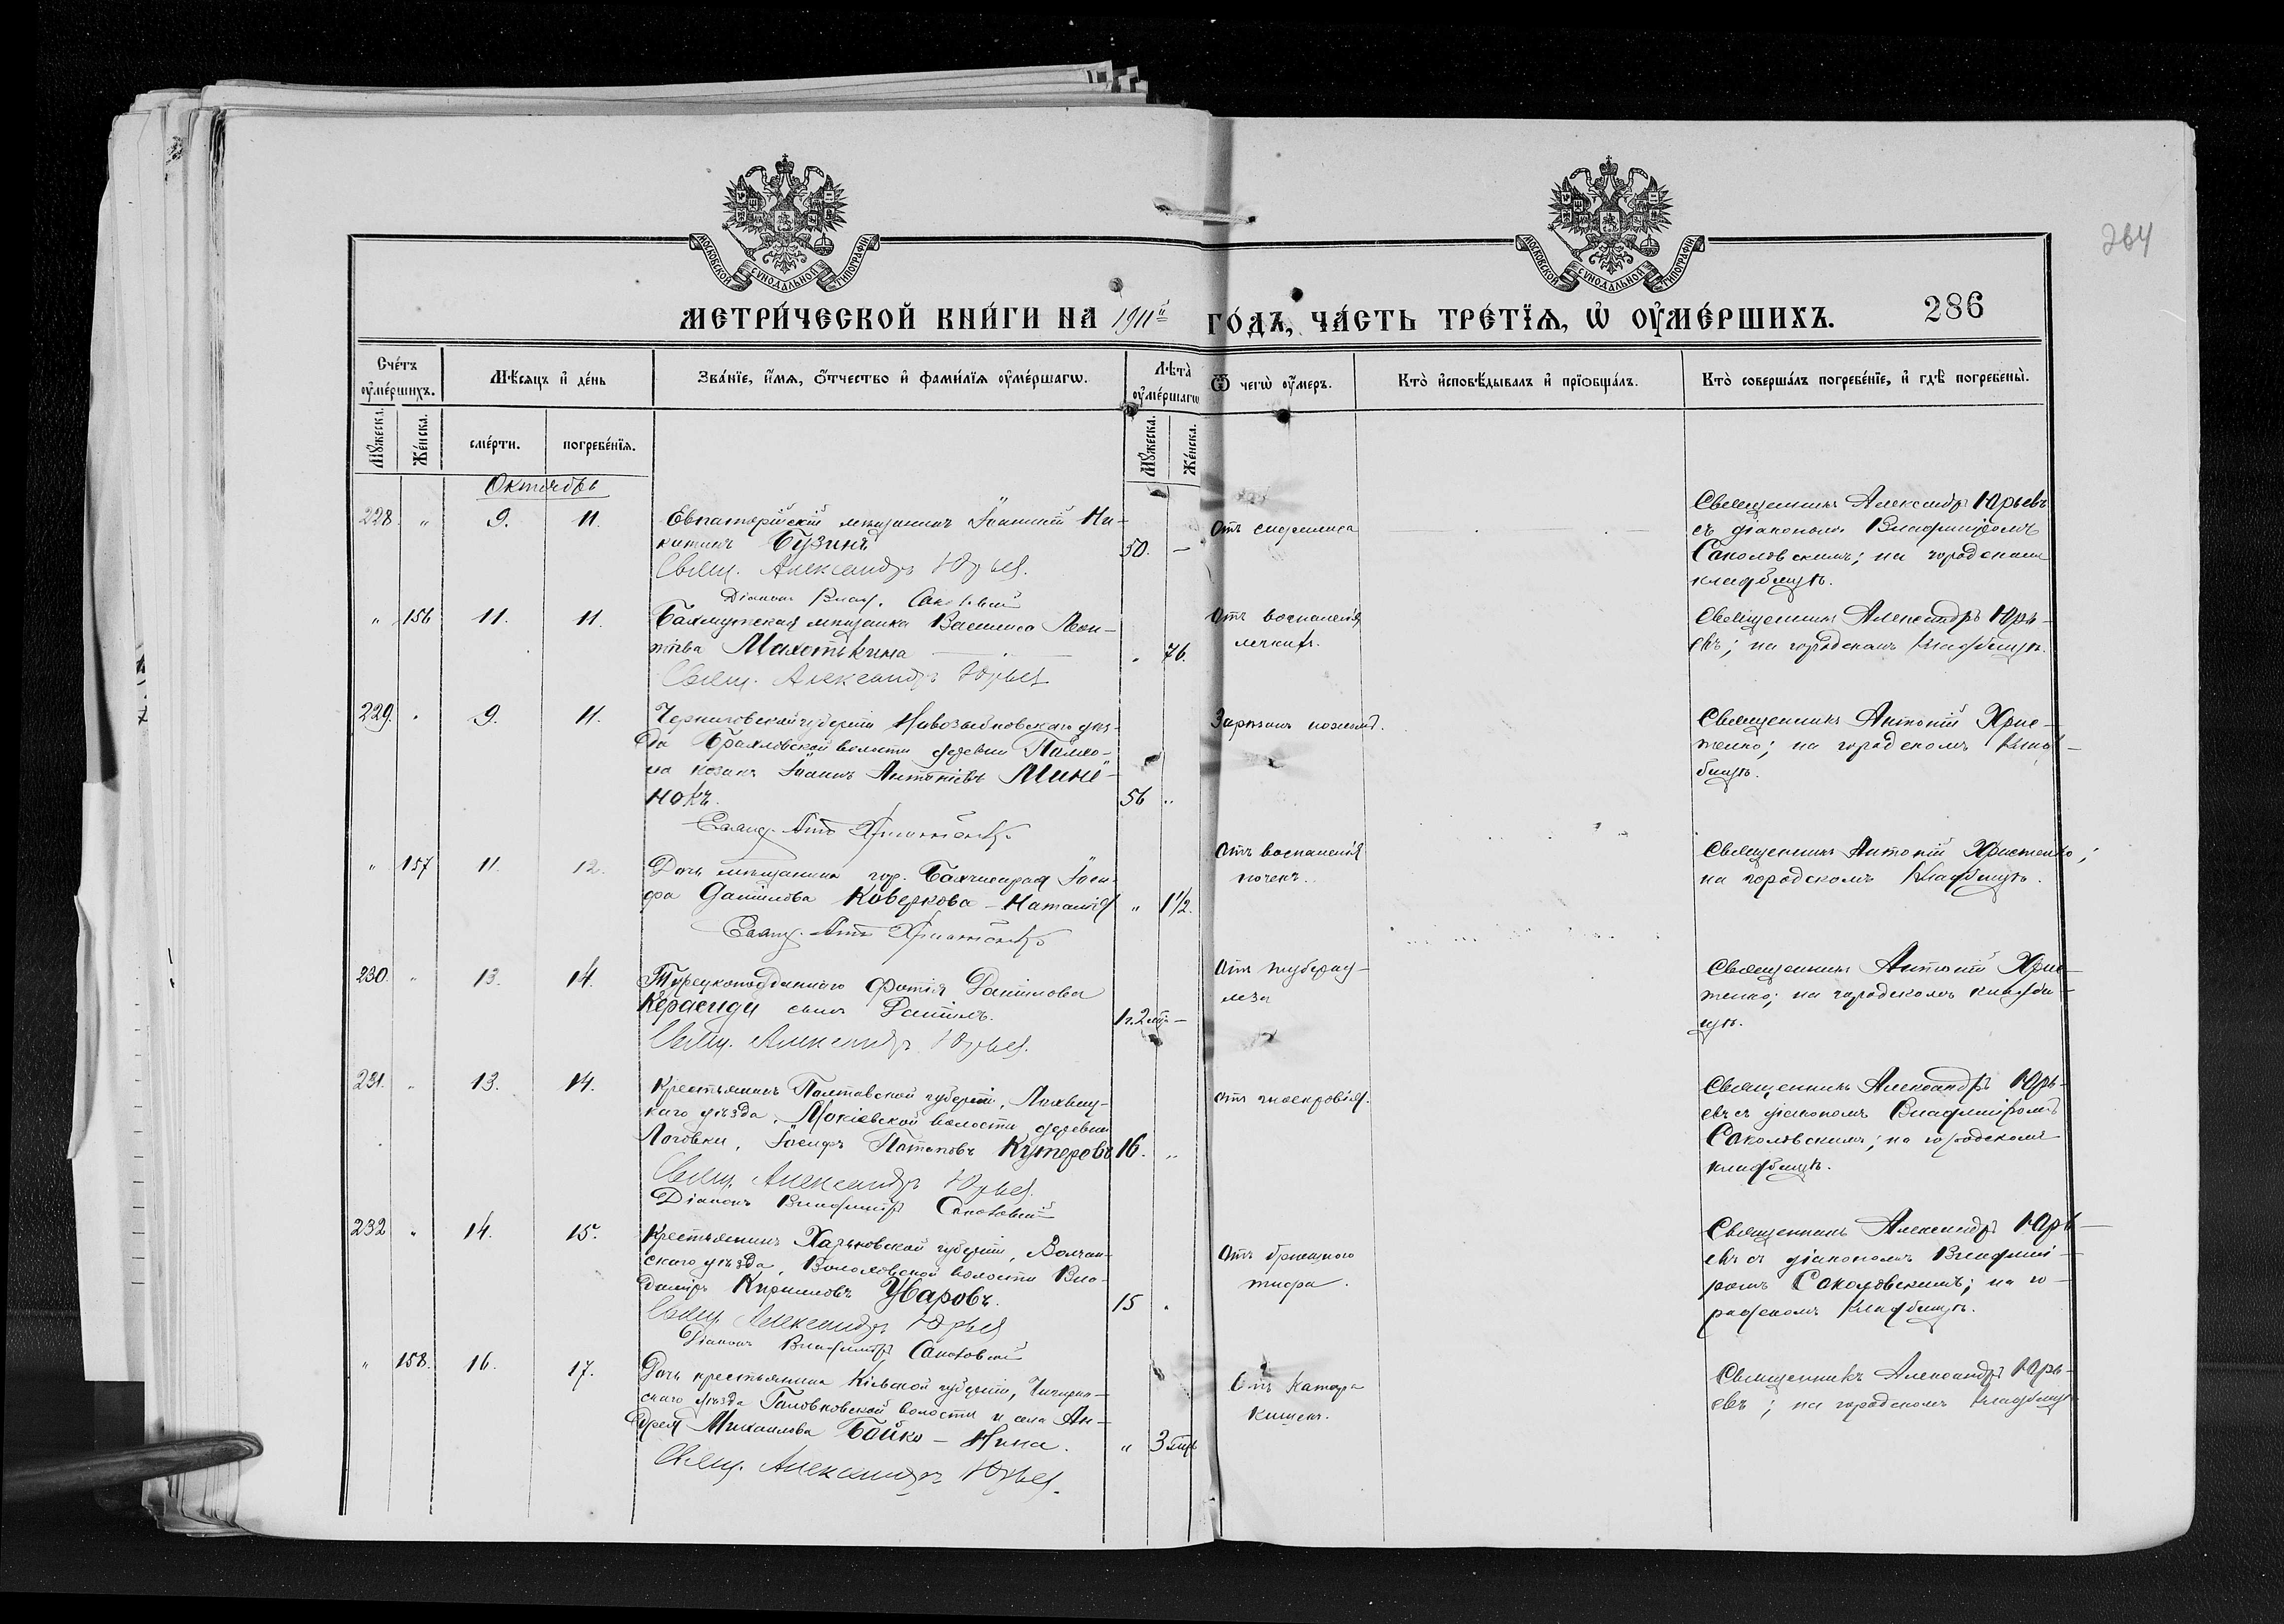 МОСКОВСКОЙ СѴНОДАЛЬНОЙ ТИПОГРАФІИ
МОСКОВСКОЙ СѴНОДАЛЬНОЙ ТИПОГРАФІИ
264
МЕТРИ́ЧЕСКОЙ КНИ́ГИ НА 1911й ГО́ДЪ, ЧА́СТЬ ТРЕ́ТЇѦ, Ѡ҆ ОУ҆МЕ́РШИХЪ. 286
Сче́тъ оу҆ме́ршихъ.
Мѣ́сяцъ и҆ де́нь
Зва́нїе, и҆́мѧ, ѻ҆́тчество и҆ фами́лїѧ оу҆ме́ршагѡ.
Лѣ́та оу҆ме́ршагѡ
Ѿ чегѡ̀ оу҆́меръ.
Кто̀ и҆сповѣ́дывалъ и҆ прїѡбща́лъ.
Кто̀ соверша́лъ погребе́нїе, и҆ гдѣ̀ погребены̀.
Мꙋ́жеска.
Же́нска.
сме́рти.
погребе́нїѧ.
Мꙋ́жеска.
Же́нска.
Октябрь
228 " 9. 11.
Евпаторійскій мѣщанинъ Іоанникій Ни-
китинъ Бузинъ
50. —
Свящ. Александръ Юрьев.
Діаконъ Влад. Соколовскій
Отъ
Священникъ Александръ Юрьевъ
съ діакономъ Владиміромъ
Соколовскимъ; на городскомъ
кладбищѣ.
" 156 11. 11.
Бахмутская мѣщанка Василиса Леон-
тіева Махоткина
" 76.
Свящ. Александръ Юрьев
Отъ воспаленія
легкихъ.
Священникъ Александръ Юрь-
евъ; на городскомъ кладбищѣ.
229. " 9. 11.
Черниговской губерніи Новозыбковскаго уѣз-
да Брахловской волости деревни
козакъ Іоаннъ Антоніевъ Мине-
нокъ.
56 "
Свящ. Ант. Христенко
Зарѣзанъ ножемъ.
Священникъ Антоній Хрис-
тенко; на городскомъ клад-
бищѣ.
" 157 11. 12.
Дочь мѣщанина гор. Бахчисарая Іоси-
фа Даніилова Коверкова — Наталія
" 1 1/2.
Свящ. Ант. Христенко
Отъ воспаленія
почекъ.
Священникъ Антоній Христенко;
на городскомъ кладбищѣ.
230. " 13. 14.
Турецкоподданнаго Фотія Даніилова
Керасиди сынъ Даніилъ.
1г. 2 мѣс —
Свящ. Александръ Юрьев.
Отъ туберку-
леза
Священникъ Антоній Хрис-
тенко; на городскомъ кладби-
щѣ.
231. " 13. 14.
Крестьянинъ Полтавской губерніи, Лохвиц-
каго уѣзда, Мокіевской волости деревни
Логовки, Іосифъ Потаповъ Кутеровъ
16. "
Свящ. Александръ Юрьев.
Діаконъ Владиміръ Соколовскій
отъ гноекровія.
Священникъ Александръ Юрь-
евъ съ діакономъ Владиміромъ
Соколовскимъ; на городскомъ
кладбищѣ.
232 " 14. 15.
Крестьянинъ Харьковской губерніи, Волчан-
скаго уѣзда, Волоховской волости Вла-
диміръ Кирилловъ Уваровъ.
15 "
Свящ. Александръ Юрьев
Діаконъ Владиміръ Соколовскій
Отъ брюшного
тифа.
Священникъ Александръ Юрь-
евъ съ діакономъ Владимі-
ромъ Соколовскимъ; на го-
родскомъ кладбищѣ.
" 158. 16. 17.
Дочь крестьянина Кіевской губерніи, Чигирин-
скаго уѣзда Головковской волости и села Ан-
дрея Михаилова Бойко — Нина.
" 3 мѣс
Свящ. Александръ Юрьев.
Отъ катара
кишекъ.
Священникъ Александръ Юрь-
евъ; на городскомъ кладбищѣ